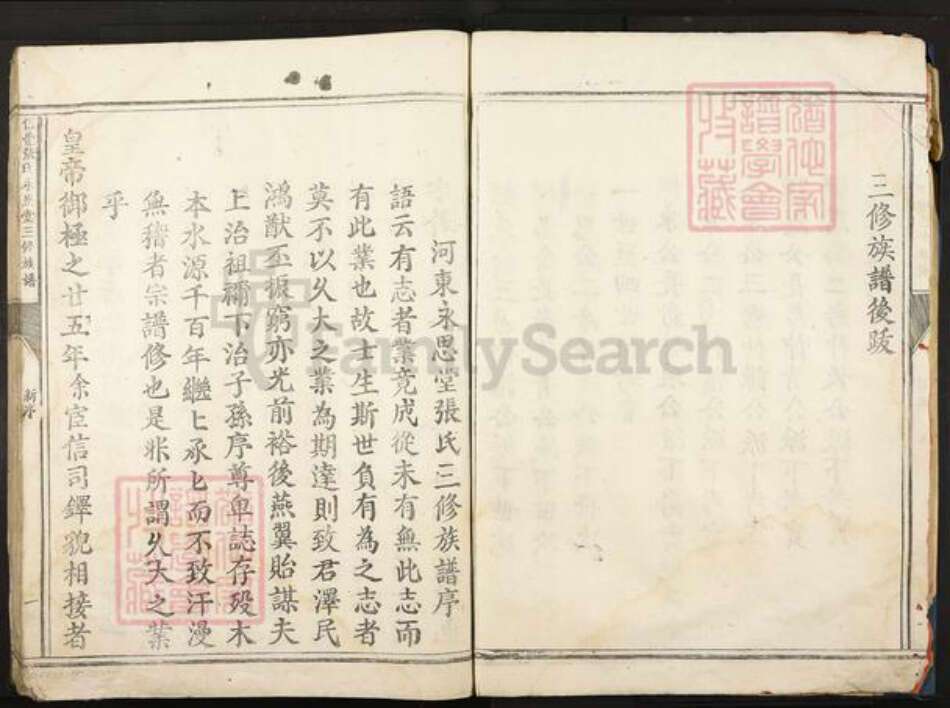 三修族譜後跋
河東永思堂張氏三修族譜序
語云有志者業竟成從未有無此志而
有此業也故士生斯世負有為之志者
莫不以久大之業為期達則致君澤民
鴻猷丕振窮亦光前裕後燕翼貽謀夫
上治祖禰下治子孫序尊卑誌存歿木
本水源千百年繼匕承匕而不致汗漫
無稽者宗譜修也是非所謂久大之業
乎
皇帝御極之廿五年余宦信司鐸貌相接者
張氏永思堂三修族譜
新序
一
譜學會
收藏
FamilySearch